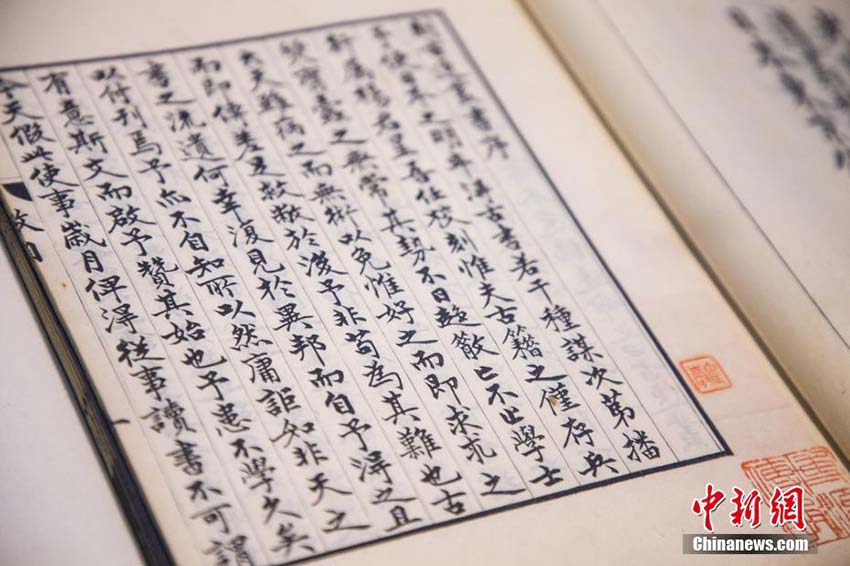 刻古逸叢書序
予使日本之明年得古書若干種謀次第播
行屬楊君星吾任校刻惟夫古籍之僅存兵
燹蟲蠹之無常其勢不日趨散亡不止學士
大夫雖病之而無術以免惟好之而即求求之
而即傳差足救敝於後予非苟為其難也古
書之流遺何幸復見於異邦而自予得之且
以付刊焉予亦不自知所以然庸詎知非天之
有意斯文而啟予贊其始也予患不學久矣
今天假此使事歲月俾得從事讀書不可謂
中新网
Chinanews.com